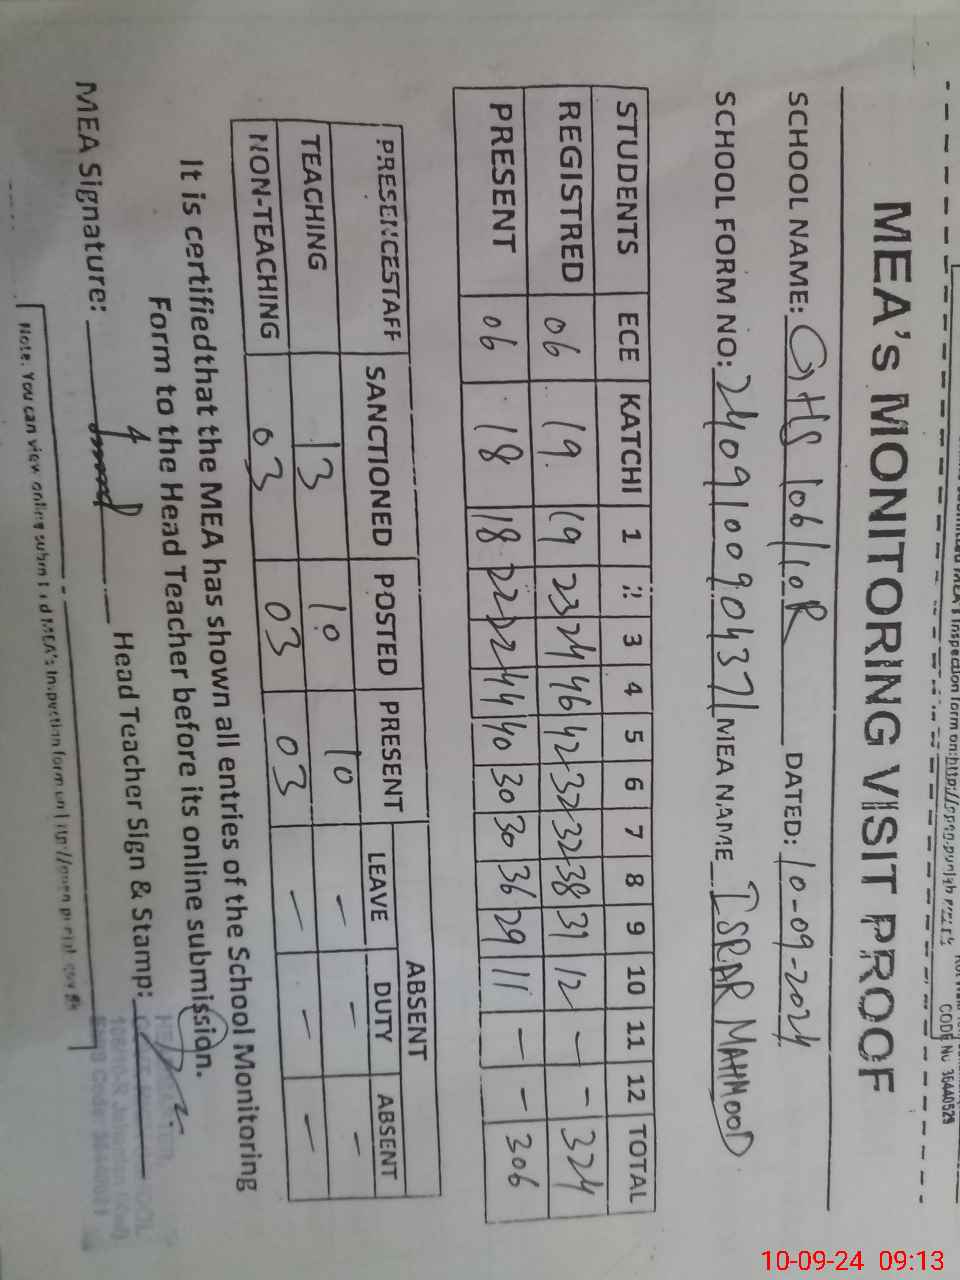 CODE No 36440529
MEA's MONITORING VISIT PROOF
SCHOOL NAME: GHS 106/10R DATED: 10-09-2024
SCHOOL FORM NO: 2409100904371 MEA NAME ISRAR MAHMOOD
STUDENTS ECE KATCHI 1 2 3 4 5 6 7 8 9 10 11 12 TOTAL
REGISTRED 06 19 19 23 24 46 42 32 32 38 31 12 - - 324
PRESENT 06 18 18 22 22 44 40 30 30 36 29 11 - - 306
ABSENT
PRESENCESTAFF SANCTIONED POSTED PRESENT LEAVE DUTY ABSENT
TEACHING 13 10 10 - - -
NON-TEACHING 03 03 03 - - -
It is certifiedthat the MEA has shown all entries of the School Monitoring
Form to the Head Teacher before its online submission.
MEA Signature: Head Teacher Sign & Stamp:
Note: You can view online submitted MEA's Inspection form on
10-09-24 09:13